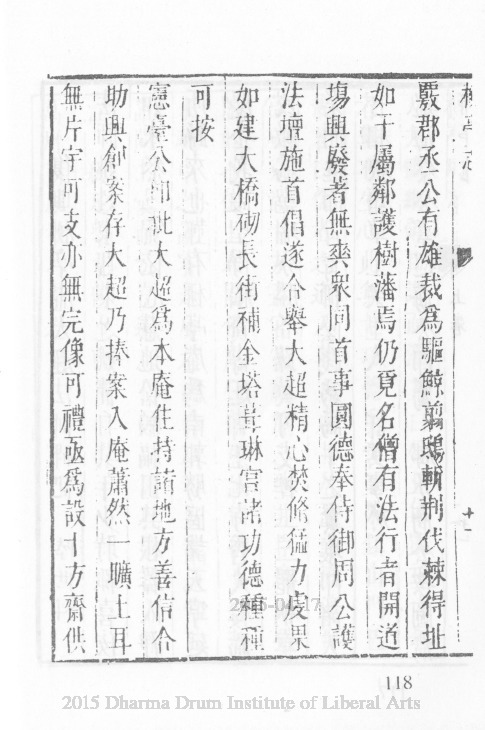 覈郡丞公有雄裁爲驅鯨翦鴟斬荆伐棘得址
如干屬鄰護樹藩焉仍覓名僧有法行者開道
塲興廢著無爽衆同首事圓德奉侍御周公護
法壇施首倡遂合舉大超精心焚修猛力虔果
如建大橋砌長街補金塔葺琳宫諸功德種種
可按
憲臺公卽批大超爲本庵住持諭地方善信合
助興創案存大超乃捧案入庵蕭然一曠土耳
無片宇可支亦無完像可禮亟爲設十方齋供
十一
118
2015 Dharma Drum Institute of Liberal Arts